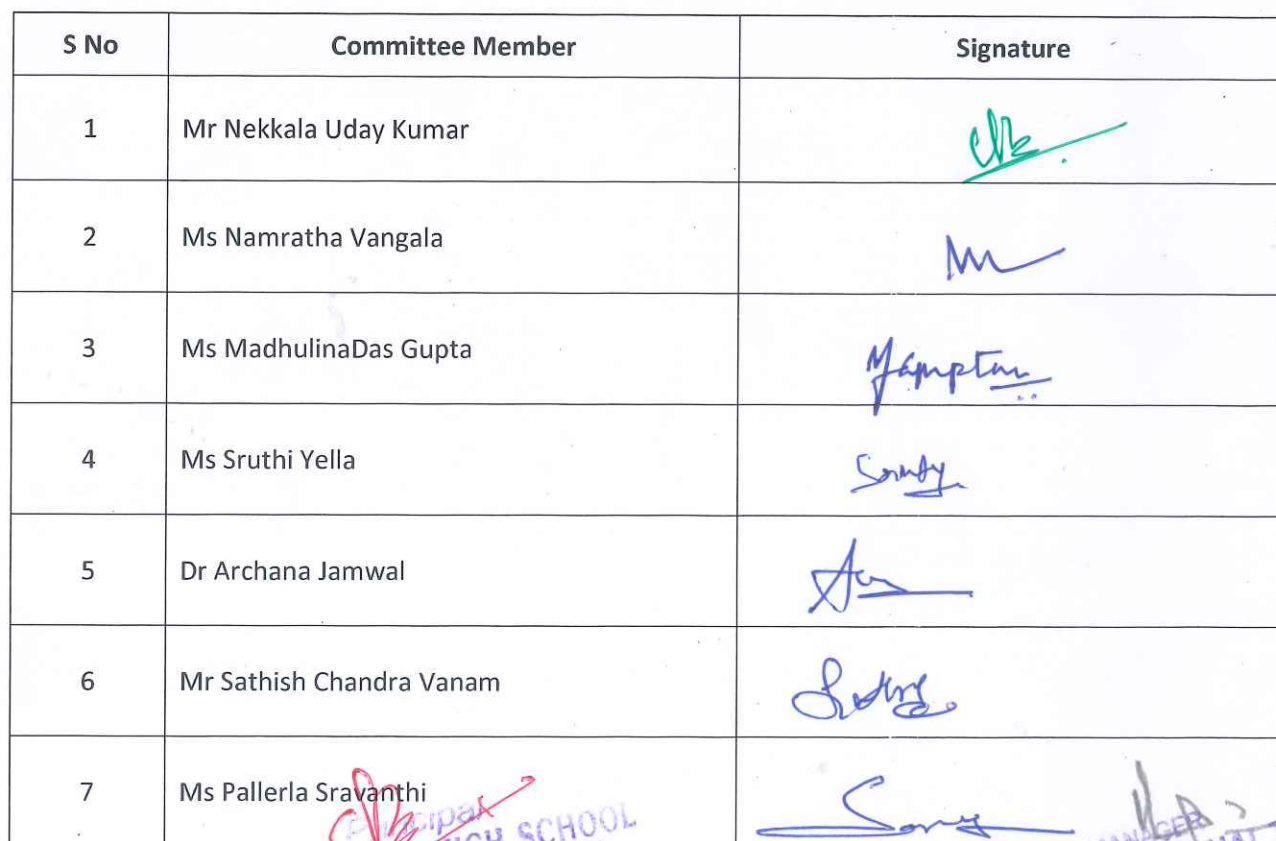 S No Committee Member Signature
1 Mr Nekkala Uday Kumar
2 Ms Namratha Vangala
3 Ms MadhulinaDas Gupta
4 Ms Sruthi Yella
5 Dr Archana Jamwal
6 Mr Sathish Chandra Vanam
7 Ms Pallerla Sravanthi
Principal
HIGH SCHOOL
MANAGER